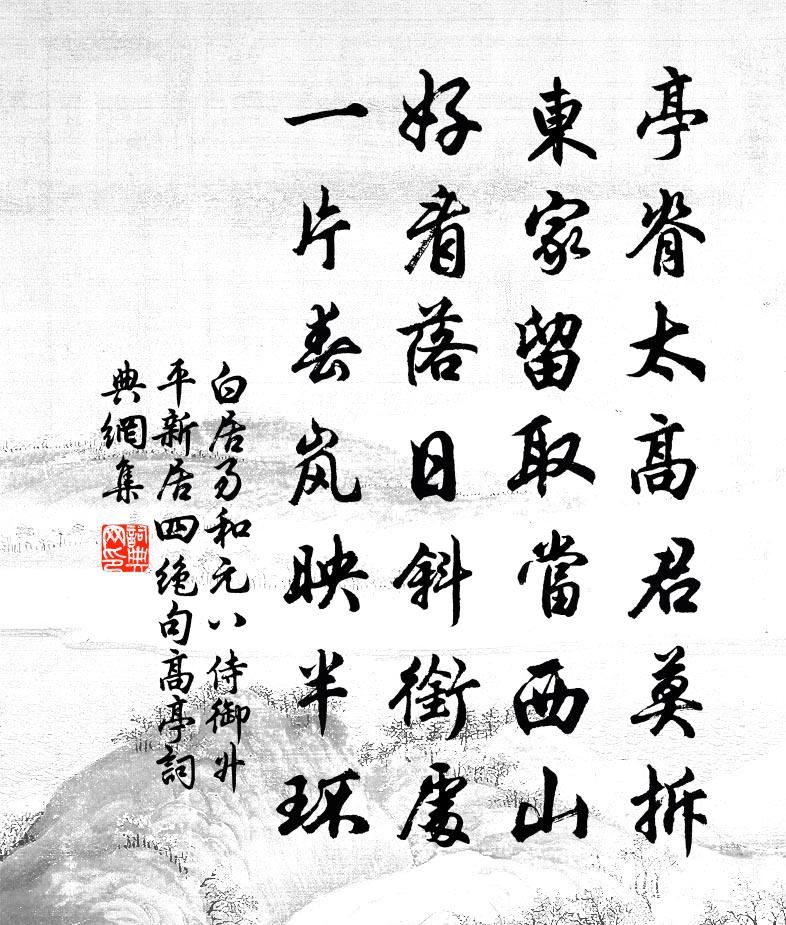 亭脊太高君莫拆
東家留取當西山
好看落日斜銜處
一片春岚映半环
白居易和元八侍御升
平新居四绝句高亭詞
典網集
詞典網印